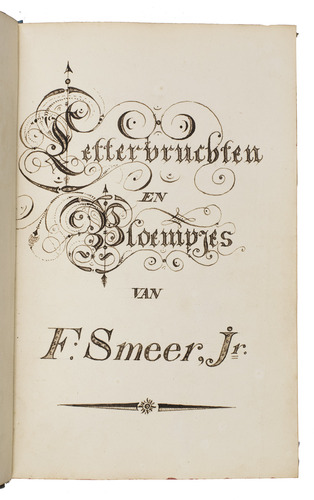 Lettervruchten
EN
Bloempjes
VAN
F. Smeer, Jr.